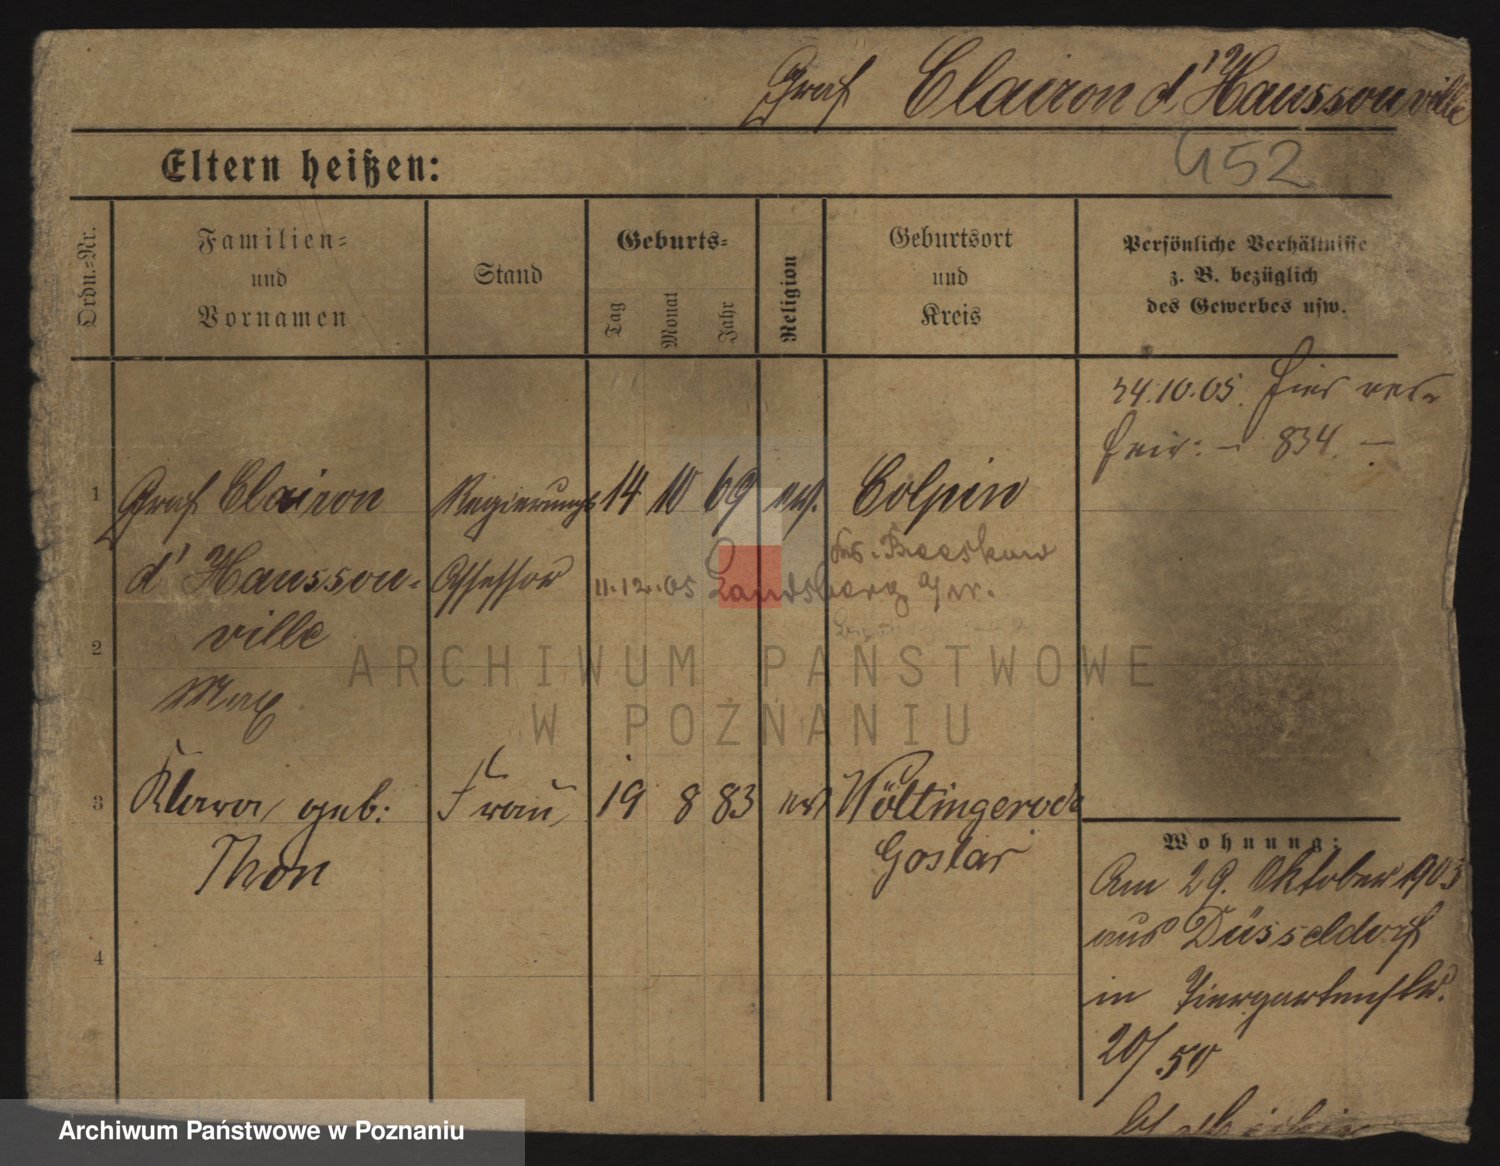 Graf Clairon d'Haussonville
452
Eltern heißen:
Ordn.-Nr.
Familien-
und
Vornamen
Stand
Geburts-
Tag
Monat
Jahr
Religion
Geburtsort
und
Kreis
Persönliche Verhältnisse
z. B. bezüglich
des Gewerbes usw.
24.10.05. hier
834. —
1 Graf Clairon Regierungs 14 10 69 ev. Colpin
d'Hausson- Assessor Krs. Beeskow
11.12.05 Landsberg a/w.
ville
2
Max
3 Klara, geb: Frau, 19 8 83 ev Wöltingerode
Thon Goslar
4
Wohnung:
Am 29. Oktober 1905
aus Düsseldorf
in Tiergartenstr.
20/50
ARCHIWUM PAŃSTWOWE
W POZNANIU
Archiwum Państwowe w Poznaniu